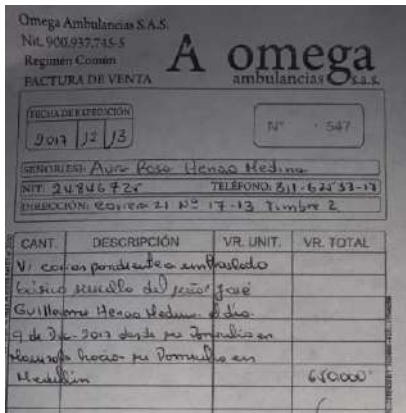 Omega Ambulancias S.A.S.
Nit. 900.937.745-5
Regimen Común
FACTURA DE VENTA
A omega
ambulancias s.a.s.
FECHA DE EXPEDICIÓN
2017 12 13
N° 547
SEÑOR(ES): Aura Rosa Henao Medina
NIT: 24846725 TELÉFONO: 311-6
DIRECCIÓN: Carrera 21 Nº 17-13 Timbre 2
CANT. DESCRIPCIÓN VR. UNIT. VR. TOTAL
Vr correspondiente a un traslado
básico sencillo del señor José
Guillermo Henao Medina el día
9 de Dic - 2017 desde su Domicilio en
hacia su Domicilio en
Medellín 650.000